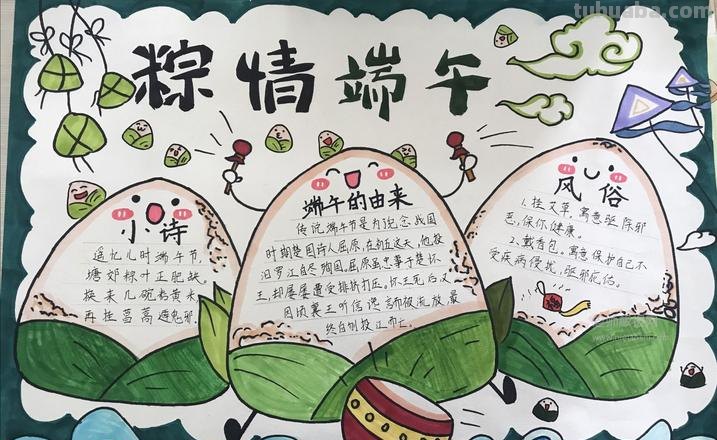 tuhuaba.com
粽情端午
小诗
遥忆儿时端午节,
塘郊棕叶正肥缺.
换来几碗粘黄米,
再挂菖蒿避鬼邪.
端午的由来
传说端午节是为纪念战国
时期楚国诗人屈原,在初五这天,他投
汨罗江自尽殉国。屈原虽忠事于楚怀
王,却屡屡遭受排挤打压。怀王死后又
因顷襄王听信谗言而被流放,最
终自刎投江而亡。
风俗
1.挂艾草,寓意驱除邪
恶,保你健康。
2.戴香包,寓意保护自己不
受疾病侵扰,驱邪庇佑。